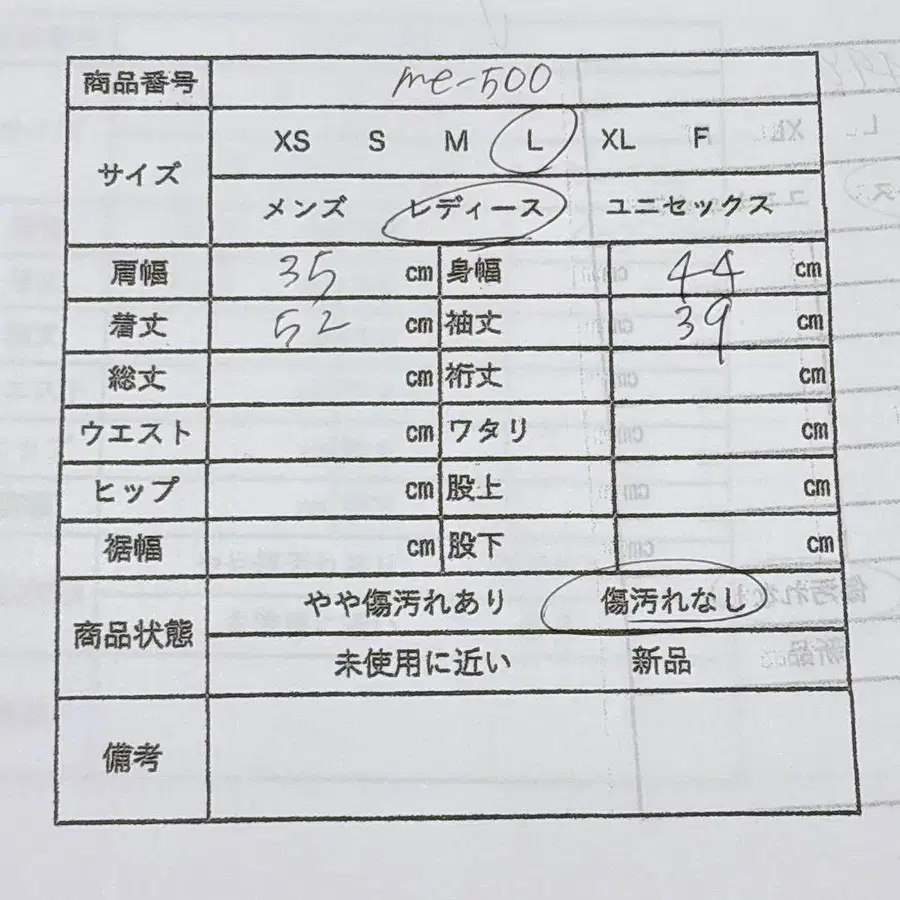 商品番号 me-500
サイズ XS S M L XL F
メンズ レディース ユニセックス
肩幅 35 cm 身幅 44 cm
着丈 52 cm 袖丈 39 cm
総丈 cm 裄丈 cm
ウエスト cm ワタリ cm
ヒップ cm 股上 cm
裾幅 cm 股下 cm
商品状態 やや傷汚れあり 傷汚れなし
未使用に近い 新品
備考